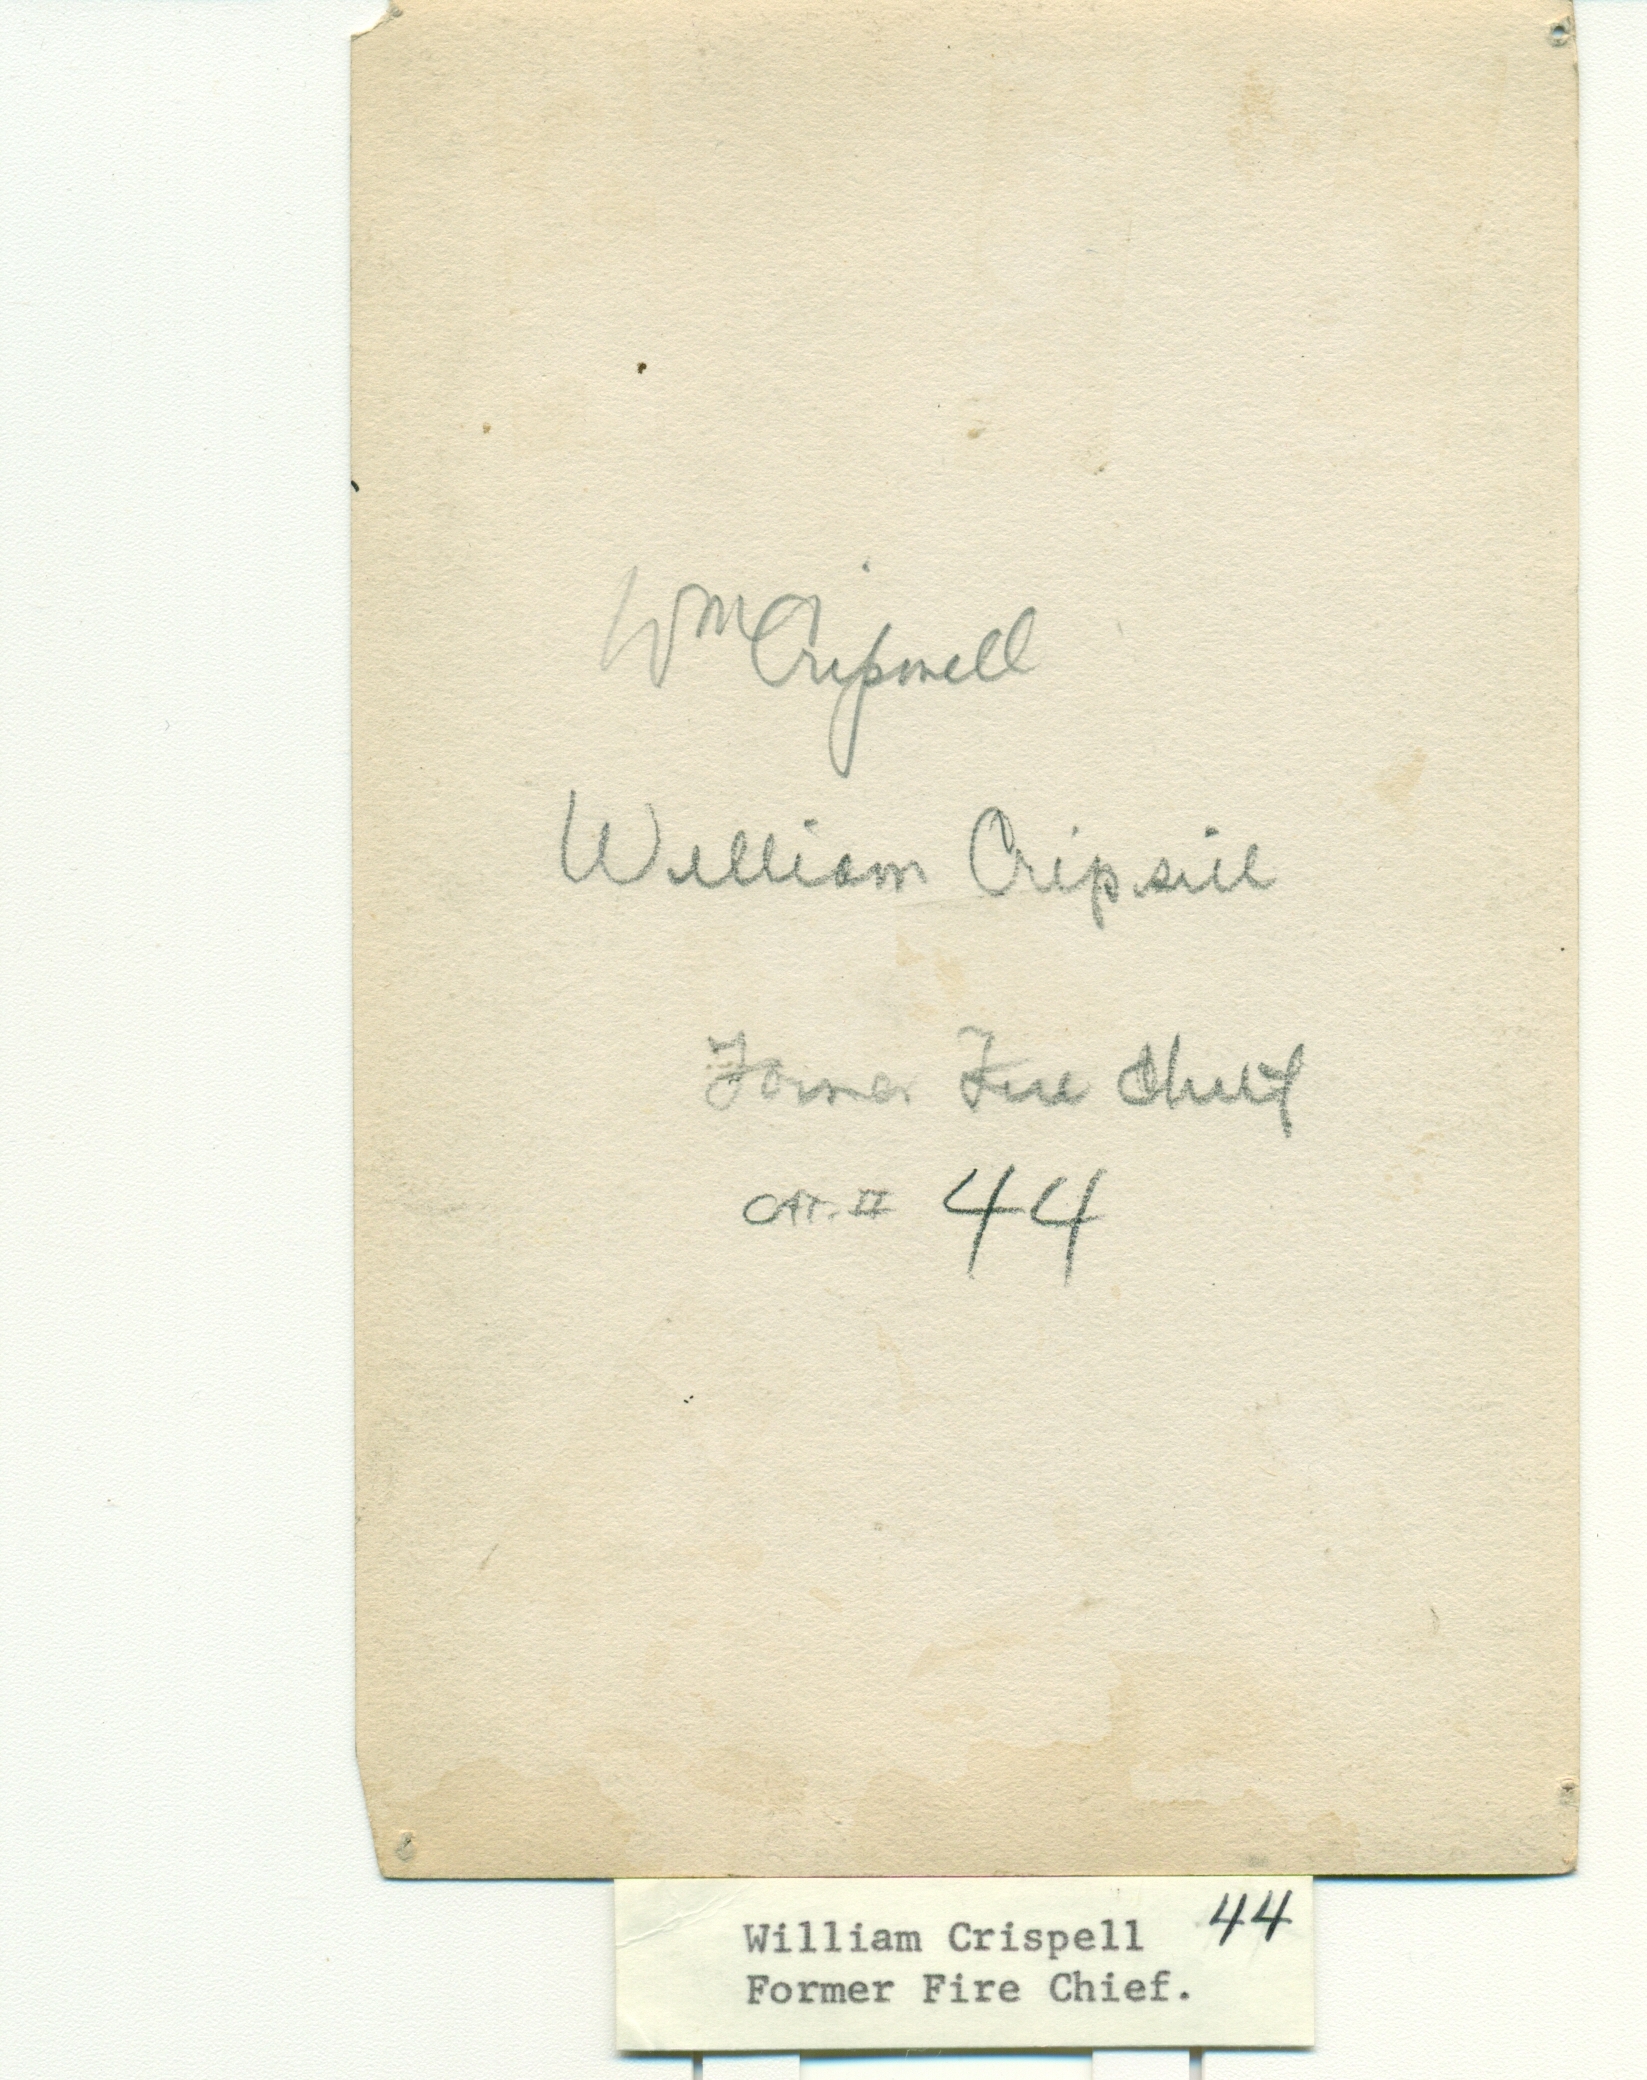 Wm Cripwell
William Cripsill
Former Fire Chief
CAT. II 44
William Crispell 44
Former Fire Chief.